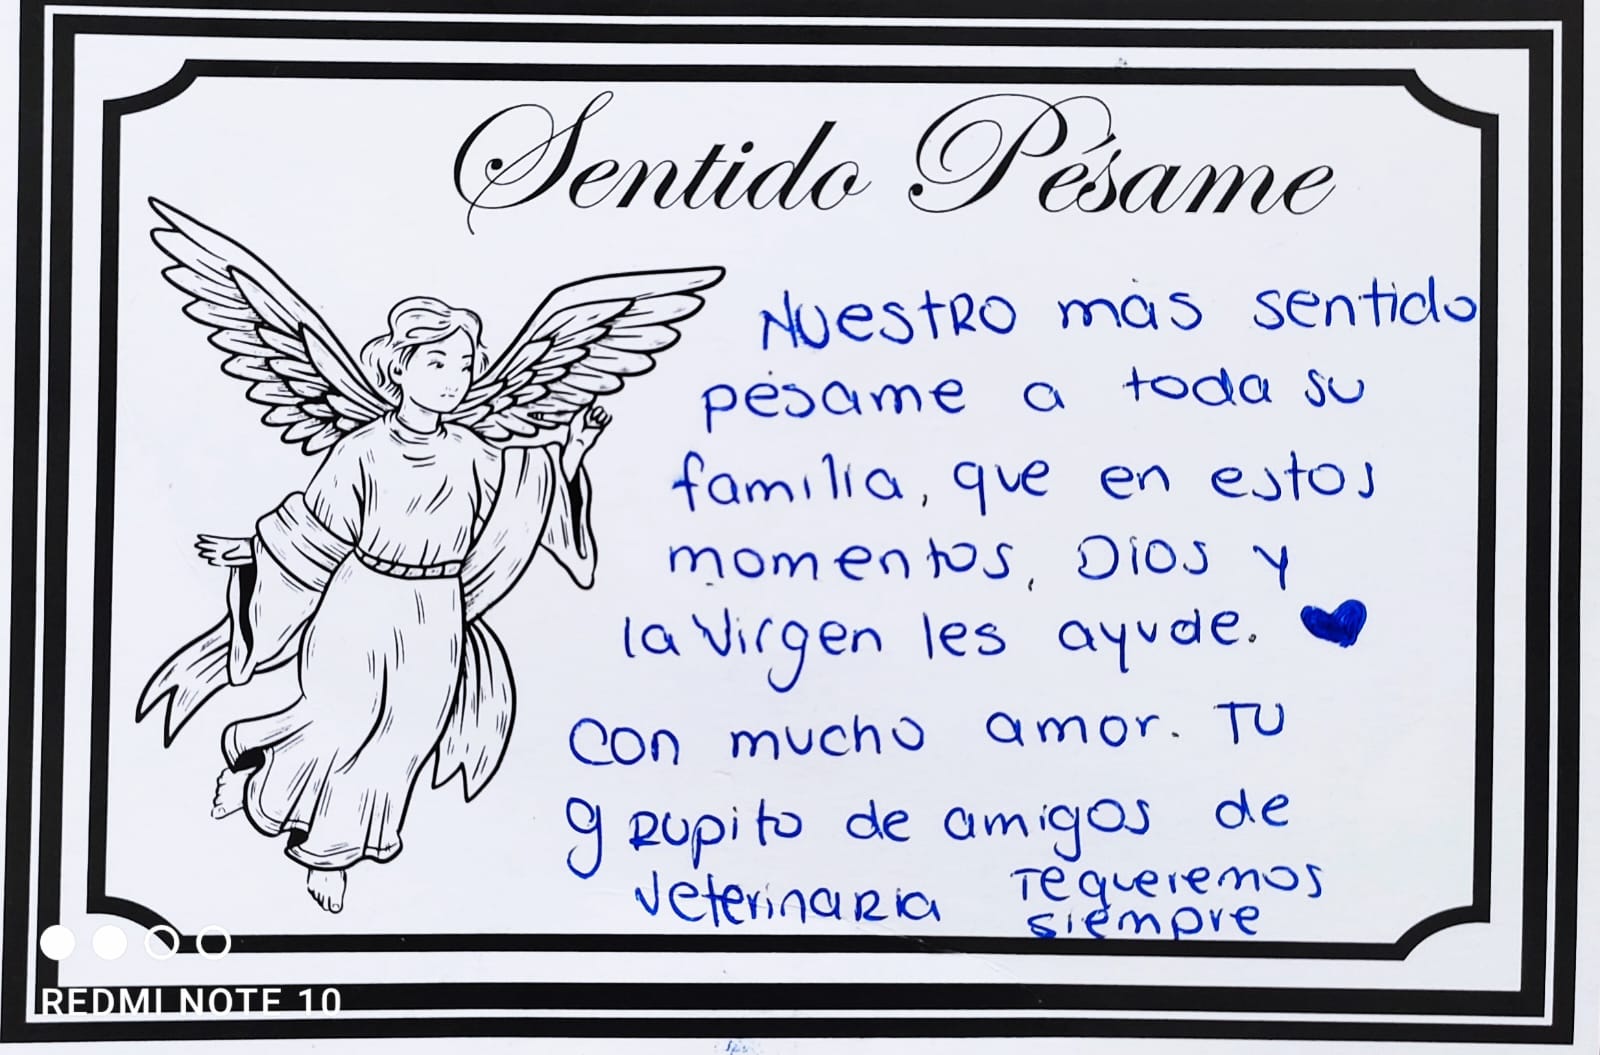 Sentido Pésame
Nuestro más sentido
pésame a toda su
familia, que en estos
momentos, Dios y
la Virgen les ayude.
Con mucho amor. Tu
grupito de amigos de
veterinaria Te queremos
siempre
REDMI NOTE 10